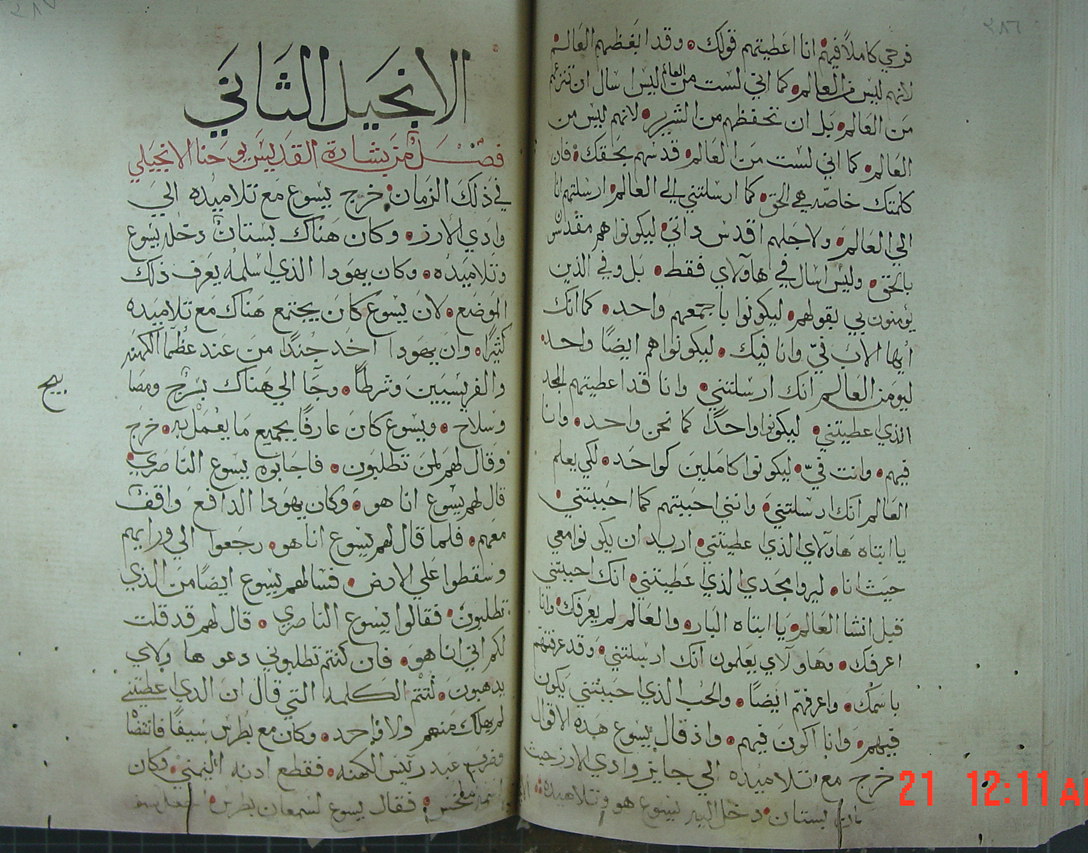 ٢٨٦
فرحي كاملاً فيهم انا اعطيتهم قولك وقد ابغضهم العالم
لانهم ليس من العالم كما اني لست من العالم ليس سال ان تنزعهم
من العالم بل ان تحفظهم من الشرير لانهم ليس من
العالم كما اني لست من العالم قدسهم بحقك فان
كلمتك خاصه هي الحق كما ارسلتني الي العالم ارسلتهم انا
الي العالم ولاجلهم اقدس ذاتي ليكونوا هم مقدسن
بالحق وليس اسال في هاولاي فقط بل وفي الذين
يومنون بي بقولهم ليكونوا باجمعهم واحد كما انك
ايها الاب في وانا فيك ليكونوا هم ايضًا واحد
ليومن العالم انك ارسلتني وانا قد اعطيتهم المجد
الذي اعطيتني ليكونوا واحدًا كما نحن واحد وانا
فيهم وانت في ليكونوا كاملين كواحد لكي يعلم
العالم انك ارسلتني وانني احببتهم كما احببتني
يا ابتاه هاولاي الذي عطيتني اريد ان يكونوا معي
حيث انا ليروا مجدي الذي عطيتني انك احببتني
قبل انشا العالم يا ابتاه البار والعالم لم يعرفك وانا
اعرفك وهاولاي يعلمون انك ارسلتني وقد عرفتهم
باسمك واعرفهم ايضًا والحب الذي احببتني يكون
فيهم وانا اكون فيهم واذ قال يسوع هذه الاقوال
خرج مع تلاميذه الي جايز وادي الارز حيث
بستان دخل اليه يسوع هو وتلاميذه
الانجيل الثاني
فصل من بشارة القديس يوحنا الانجيلي
في ذلك الزمان خرج يسوع مع تلاميذه الي
وادي الارز وكان هناك بستان دخله يسوع
وتلاميذه وكان يهودا الذي اسلمه يعرف ذلك
الموضع لان يسوع كان يجتمع هناك مع تلاميذه
كثيرًا وان يهودا اخذ جندًا من عند عظما الكهنه
والفريسيين وشرطًا وجا الي هناك بسرج ومصا
بيح
وسلاح ويسوع كان عارفًا بجميع ما يعمل به خرج
وقال لهم لمن تطلبون فاجابوه يسوع الناصري
قال لهم يسوع انا هو وكان يهودا الدافع واقف
معهم فلما قال لهم يسوع انا هو رجعوا الي ورايهم
وسقطوا علي الارض فسالهم يسوع ايضًا من الذي
تطلبون فقالوا يسوع الناصري قال لهم قد قلت
لكم اني انا هو فان كنتم تطلبوني دعوا هاولاي
يذهبون لتتم الكلمه التي قال ان الذي اعطيتني
لم يهلك منهم ولا واحد وكان مع بطرس سيفًا فانتضا
وضرب عبد رييس الكهنه فقطع اذنه اليمني وكان
اسمه ملخس فقال يسوع لسمعان بطرس
21 12:11 A